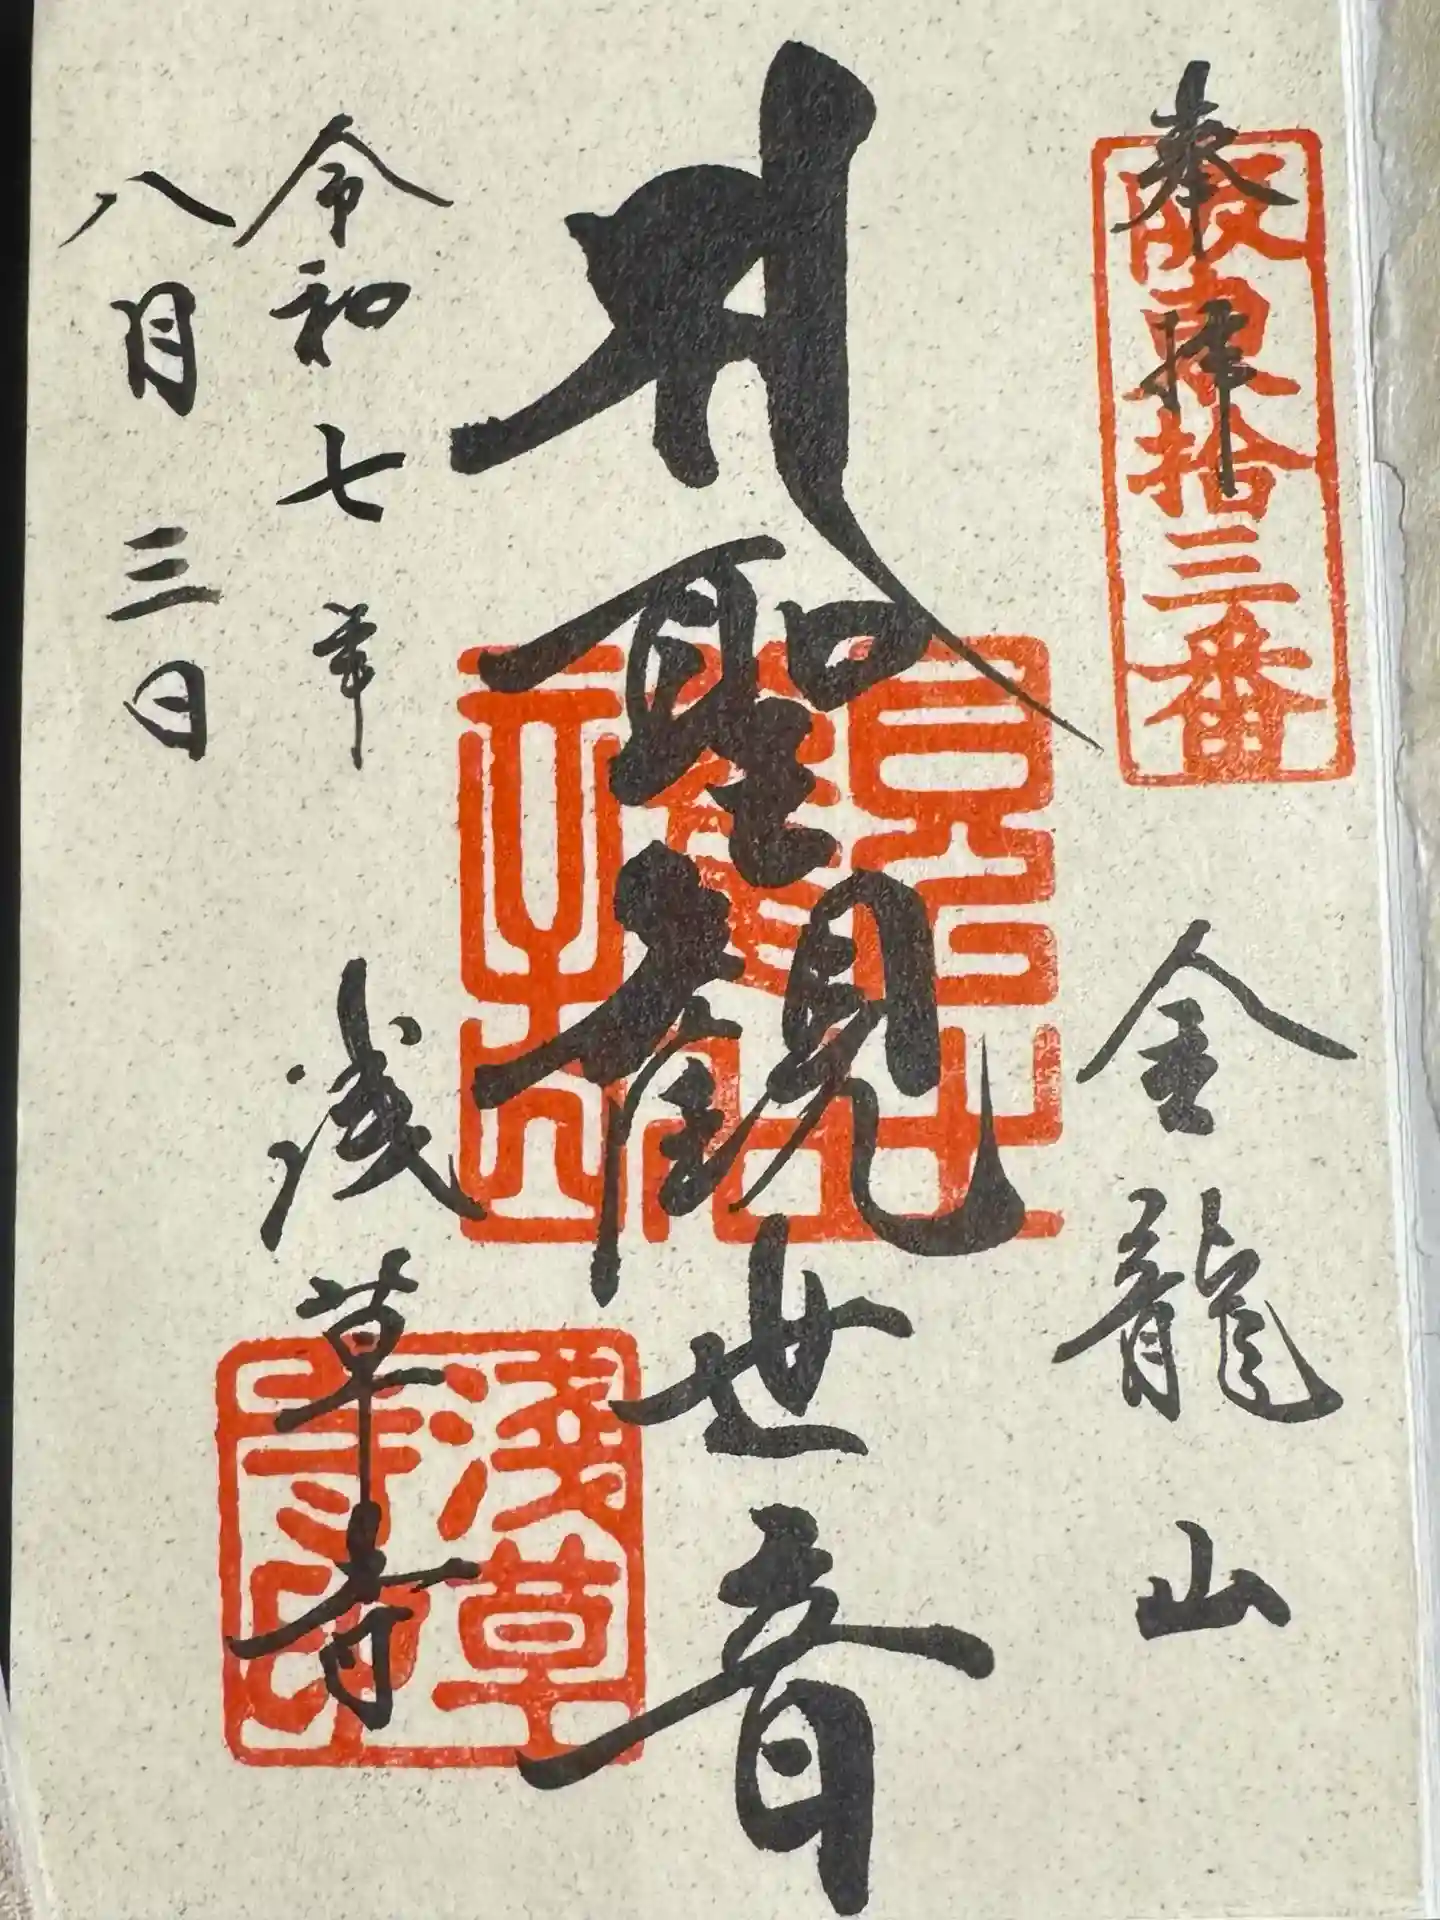 奉拝
阪東拾三番
金龍山
聖観世音
令和七年
八月三日
浅草寺
淺草寺印